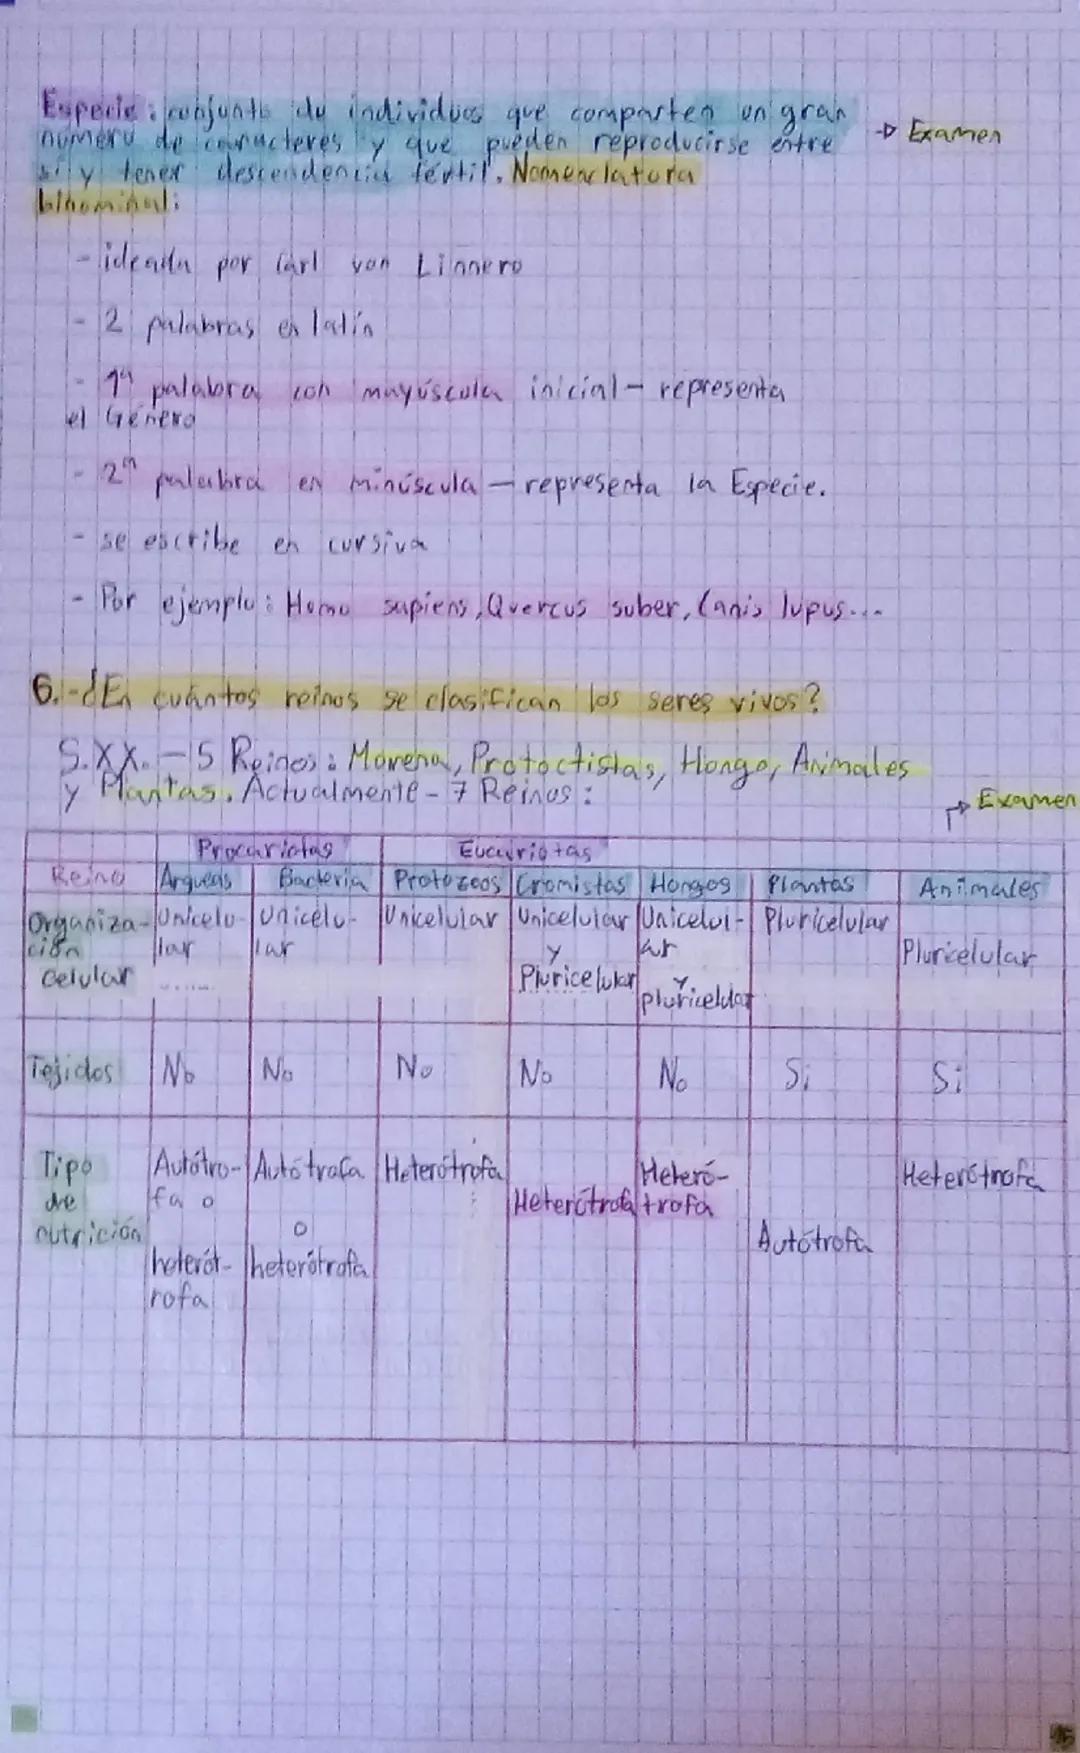 Especie: conjunto de individuos que comparten un gran
número de caracteres y que pueden reproducirse entre
sí y tener descendencia fértil. Nomenclatura
binominal:
→ Examen
- ideada por Carl von Linnero
- 2 palabras en latín
- 1ª palabra con mayúscula inicial - representa
el Género
- 2ª palabra en minúscula - representa la Especie.
- se escribe en cursiva
- Por ejemplo: Homo sapiens, Quercus suber, Canis lupus...
6.- ¿En cuántos reinos se clasifican los seres vivos?
S.XX. - 5 Reinos: Monera, Protoctistas, Hongo, Animales
y Plantas. Actualmente - 7 Reinos:
→ Examen
Procariotas Eucariotas
Reino Arqueas Bacteria Protozoos Cromistas Hongos Plantas Animales
Organiza- Unicelu- Unicelu- Unicelular Unicelular Unicelul- Pluricelular
ción lar lar y ar Pluricelular
celular ...... Pluricelular y
pluricelular
Tejidos No No No No No Si Si
Tipo Autótro- Autótrofa Heterótrofa Heteró- Heterótrofa
de fa o Heterótrofa trofa
nutrición o Autótrofa
heterót- heterótrofa
rofa